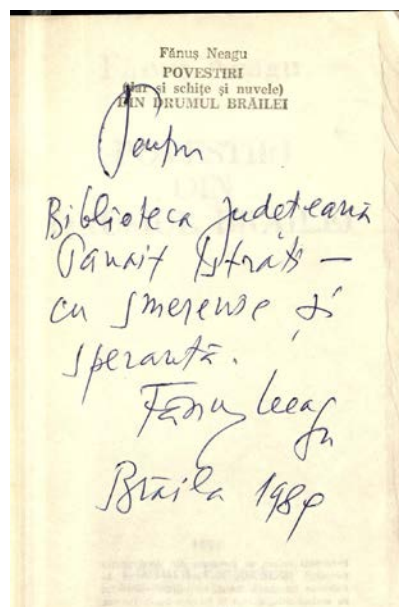 Fănuș Neagu
POVESTIRI
(dar și schițe și nuvele)
DIN DRUMUL BRĂILEI
Pentru
Biblioteca Județeană
Panait Istrati —
cu smerenie și
speranță.
Fănuș Neagu
Brăila 1989